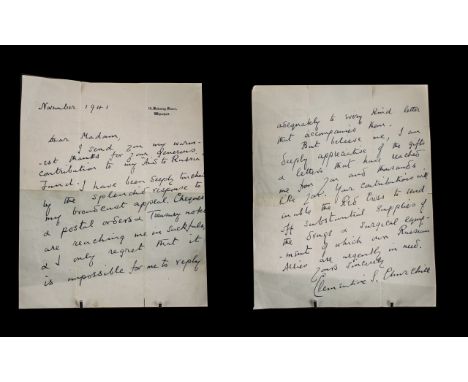 November 1941
10, Downing Street,
Whitehall
Dear Madam,
I send you my warm-
-est thanks for your generous
contribution to my Aid to Russia
Fund. I have been deeply touched
by the splendid response to
my broadcast appeal. Cheques
& postal orders & Treasury notes
are reaching me in sackfuls,
& I only regret that it
is impossible for me to reply
adequately to every kind letter
that accompanies them.
But believe me, I am
deeply appreciative of the gifts
& letters that have reached
me from you and thousands
like you. Your contributions will
enable the Red Cross to send
off substantial supplies of
the drugs & surgical equip-
-ment of which our Russian
Allies are urgently in need.
Yours sincerely
Clementine S. Churchill